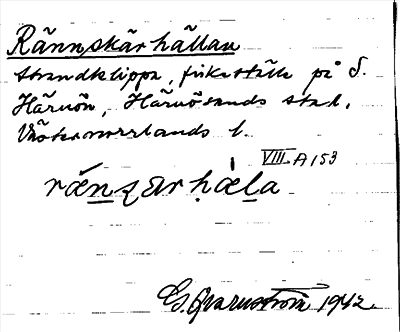 Rännskärhällan
strandklippa, fiskställe på S.
Härnön, Härnösands stad,
Västernorrlands l.
VIII A 153
rǽnʂarhæ̀la
G. Qvarnström 1942